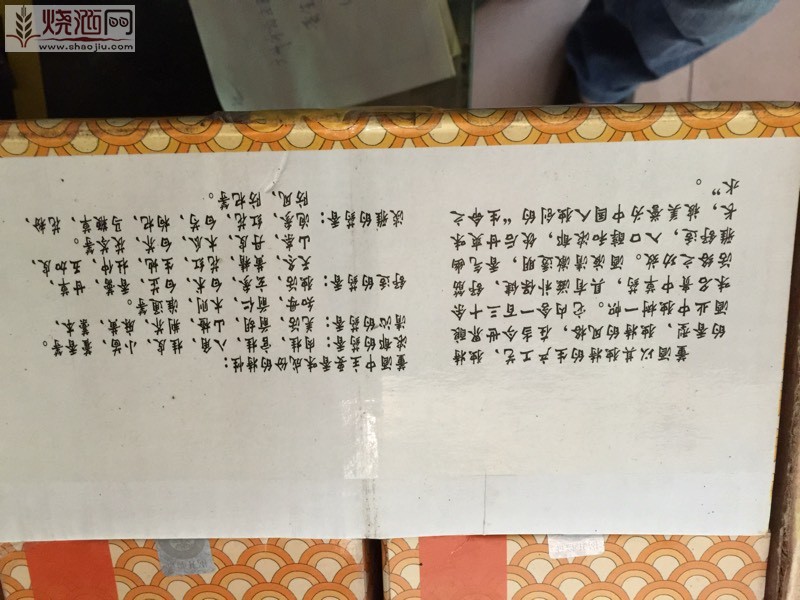 烧酒网
www.shaojiu.com
董酒以其独特的生产工艺,独特
的香型,独特的风格,在当今世界酿
酒业中独树一帜。它内含一百三十余
味名贵中草药,具有滋补保健,舒筋
活络之功效。酒液清澈透明,香气幽
雅舒适,入口醇和浓郁,饮后甘爽味
长,被美誉为中国人独创的“生命之
水”。
董酒中主要香味成份的特性:
浓郁的药香:肉桂,官桂,八角,桂皮,小茴,藿香等。
清沁的药香:羌活,前胡,山楂,荆芥,麻黄,藁本,
知母,前仁,木则,淮通等。
舒适的药香:独活,玄参,木香,白芷,香薷,甘草,
天冬,黄精,红花,生地,杜仲,五加皮,
山柰,丹皮,木瓜,白芥,茯苓等。
淡雅的药香:泡参,红花,白芍,枸杞,马鞭草,花粉,
防风,防杞等。